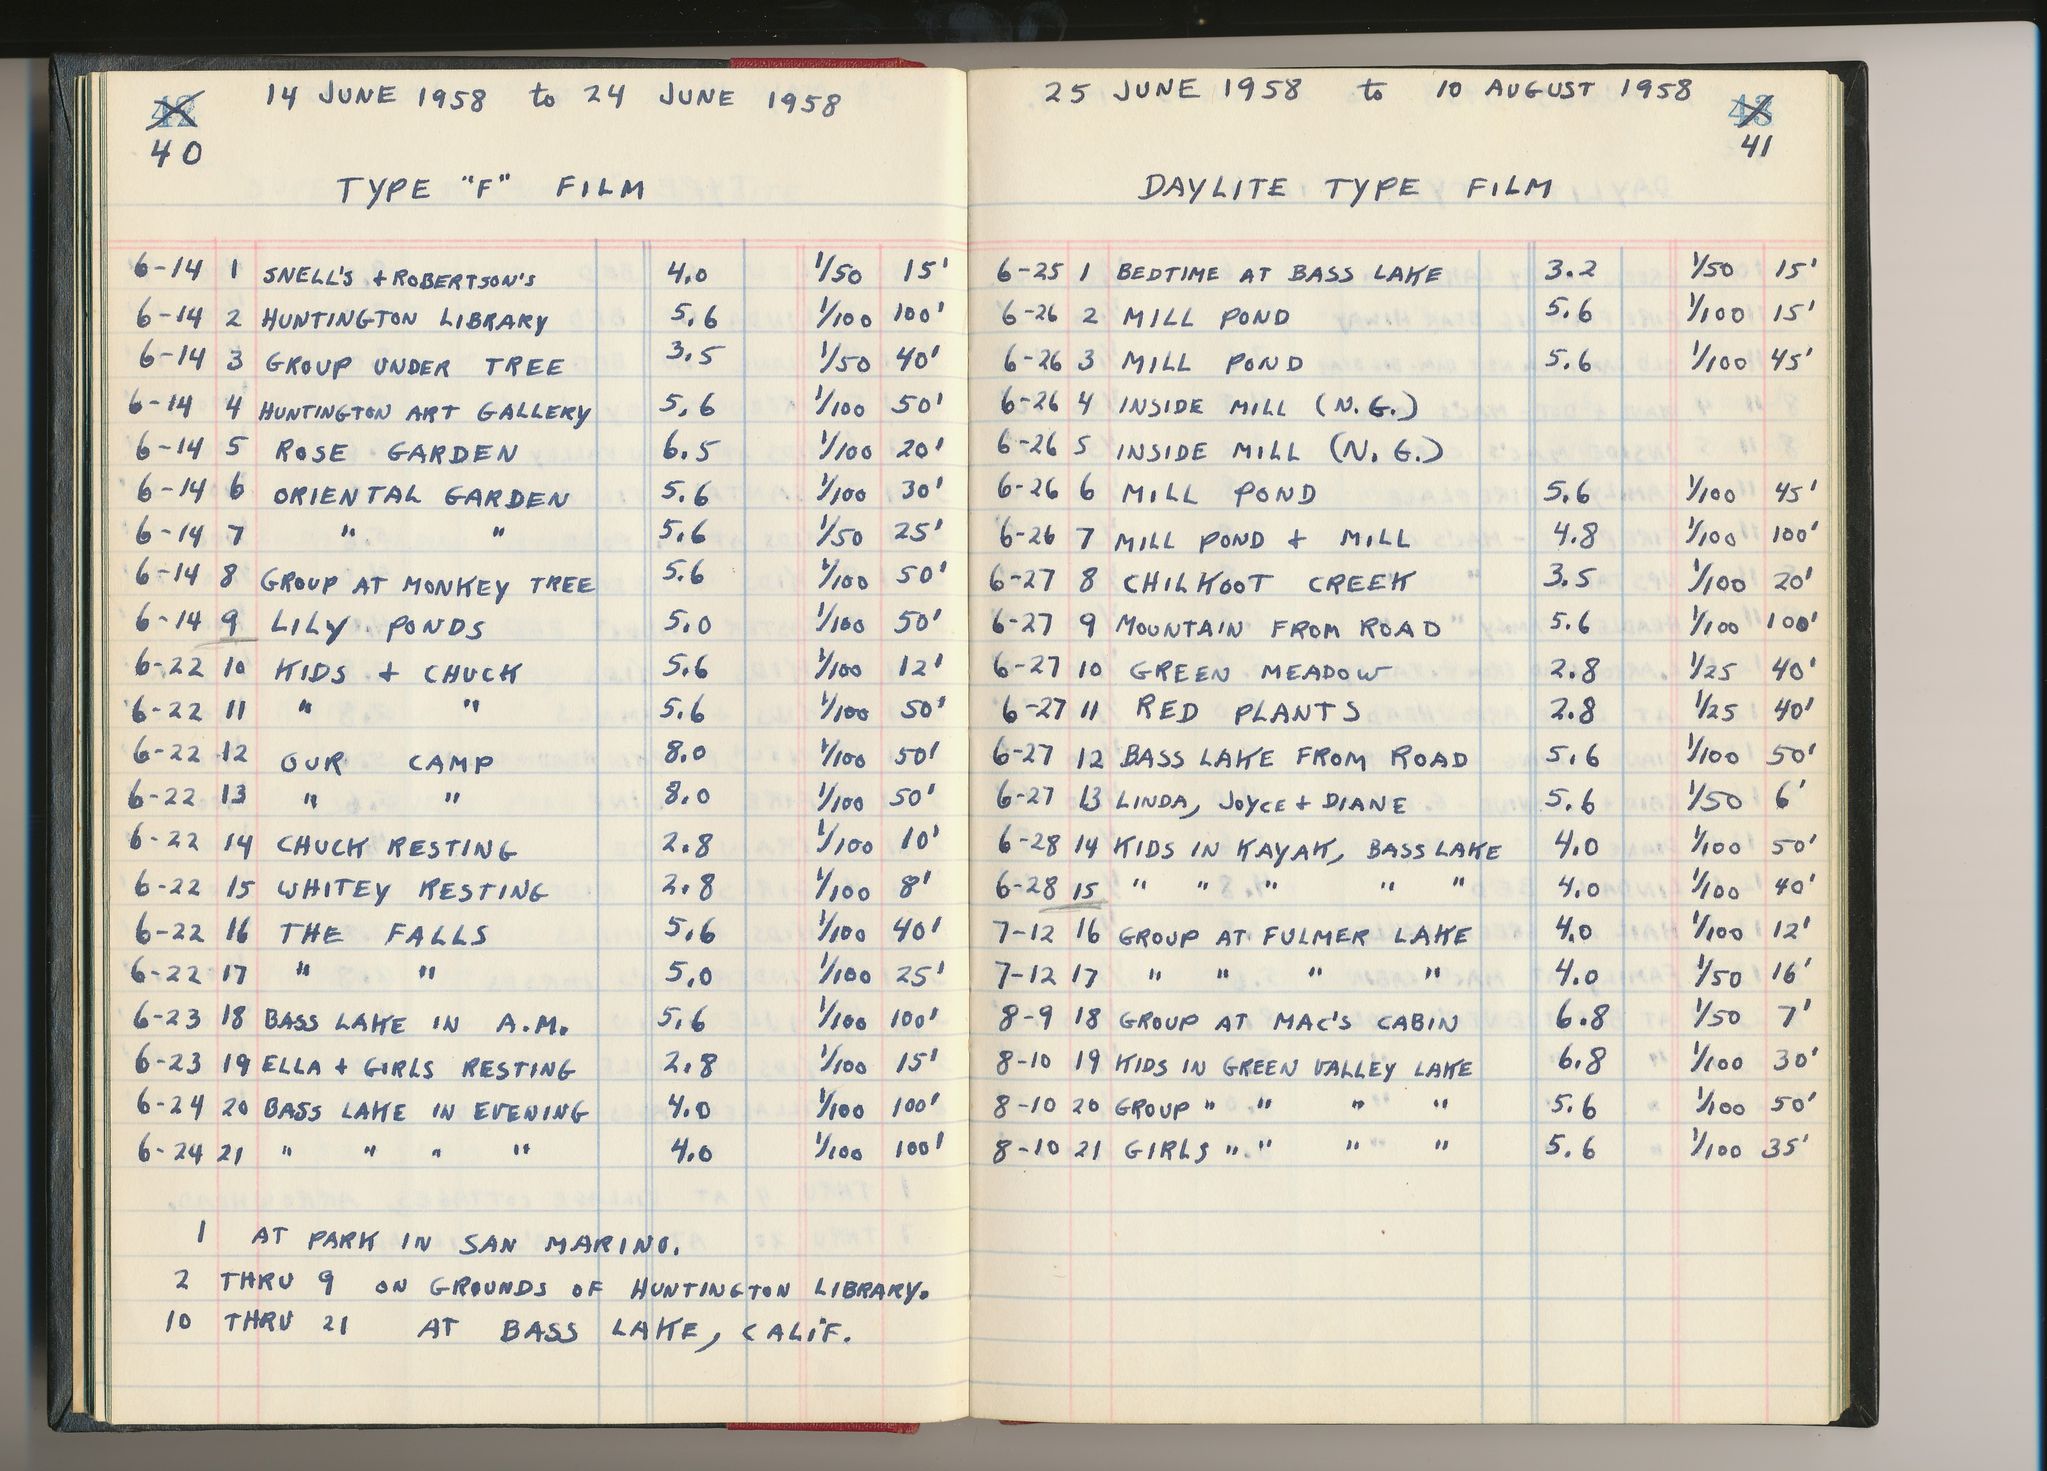 14 JUNE 1958 to 24 JUNE 1958
42
40
TYPE "F" FILM
6-14 1 SNELL'S + ROBERTSON'S 4.0 1/50 15'
6-14 2 HUNTINGTON LIBRARY 5.6 1/100 100'
6-14 3 GROUP UNDER TREE 3.5 1/50 40'
6-14 4 HUNTINGTON ART GALLERY 5.6 1/100 50'
6-14 5 ROSE GARDEN 6.5 1/100 20'
6-14 6 ORIENTAL GARDEN 5.6 1/100 30'
6-14 7 " " 5.6 1/50 25'
6-14 8 GROUP AT MONKEY TREE 5.6 1/100 50'
6-14 9 LILY PONDS 5.0 1/100 50'
6-22 10 KIDS + CHUCK 5.6 1/100 12'
6-22 11 " " 5.6 1/100 50'
6-22 12 OUR CAMP 8.0 1/100 50'
6-22 13 " " 8.0 1/100 50'
6-22 14 CHUCK RESTING 2.8 1/100 10'
6-22 15 WHITEY RESTING 2.8 1/100 8'
6-22 16 THE FALLS 5.6 1/100 40'
6-22 17 " " 5.0 1/100 25'
6-23 18 BASS LAKE IN A.M. 5.6 1/100 100'
6-23 19 ELLA + GIRLS RESTING 2.8 1/100 15'
6-24 20 BASS LAKE IN EVENING 4.0 1/100 100'
6-24 21 " " " " 4.0 1/100 100'
1 AT PARK IN SAN MARINO.
2 THRU 9 ON GROUNDS OF HUNTINGTON LIBRARY.
10 THRU 21 AT BASS LAKE, CALIF.
25 JUNE 1958 to 10 AUGUST 1958
43
41
DAYLITE TYPE FILM
6-25 1 BEDTIME AT BASS LAKE 3.2 1/50 15'
6-26 2 MILL POND 5.6 1/100 15'
6-26 3 MILL POND 5.6 1/100 45'
6-26 4 INSIDE MILL (N.G.)
6-26 5 INSIDE MILL (N.G.)
6-26 6 MILL POND 5.6 1/100 45'
6-26 7 MILL POND + MILL 4.8 1/100 100'
6-27 8 CHILKOOT CREEK 3.5 1/100 20'
6-27 9 MOUNTAIN FROM ROAD 5.6 1/100 100'
6-27 10 GREEN MEADOW 2.8 1/25 40'
6-27 11 RED PLANTS 2.8 1/25 40'
6-27 12 BASS LAKE FROM ROAD 5.6 1/100 50'
6-27 13 LINDA, JOYCE + DIANE 5.6 1/50 6'
6-28 14 KIDS IN KAYAK, BASS LAKE 4.0 1/100 50'
6-28 15 " " " " " 4.0 1/100 40'
7-12 16 GROUP AT FULMER LAKE 4.0 1/100 12'
7-12 17 " " " " 4.0 1/50 16'
8-9 18 GROUP AT MAC'S CABIN 6.8 1/50 7'
8-10 19 KIDS IN GREEN VALLEY LAKE 6.8 1/100 30'
8-10 20 GROUP " " " " 5.6 1/100 50'
8-10 21 GIRLS " " " " 5.6 1/100 35'